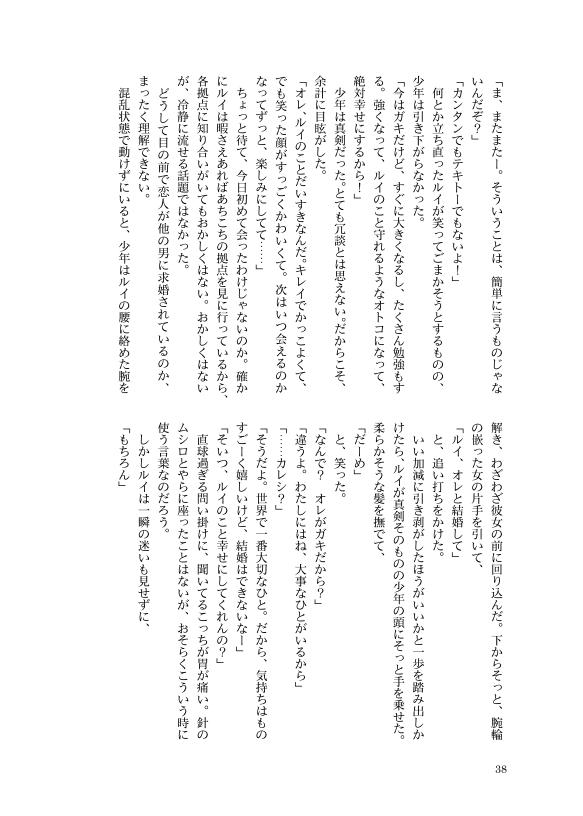 「ま、またまたー。そういうことは、簡単に言うものじゃな
いんだぞ？」
「カンタンでもテキトーでもないよ！」
　何とか立ち直ったルイが笑ってごまかそうとするものの、
少年は引き下がらなかった。
「今はガキだけど、すぐに大きくなるし、たくさん勉強もす
る。強くなって、ルイのこと守れるようなオトコになって、
絶対幸せにするから！」
　少年は真剣だった。とても冗談とは思えない。だからこそ、
余計に目眩がした。
「オレ、ルイのことだいすきなんだ。キレイでかっこよくて、
でも笑った顔がすっごくかわいくて。次はいつ会えるのか
なってずっと、楽しみにしてて……」
　ちょっと待て、今日初めて会ったわけじゃないのか。確か
にルイは暇さえあればあちこちの拠点を見に行っているから、
各拠点に知り合いがいてもおかしくはない。おかしくはない
が、冷静に流せる話題ではなかった。
　どうして目の前で恋人が他の男に求婚されているのか、
まったく理解できない。
　混乱状態で動けずにいると、少年はルイの腰に絡めた腕を
解き、わざわざ彼女の前に回り込んだ。下からそっと、腕輪
の嵌った女の片手を引いて、
「ルイ、オレと結婚して」
　と、追い打ちをかけた。
　いい加減に引き剥がしたほうがいいかと一歩を踏み出しか
けたら、ルイが真剣そのものの少年の頭にそっと手を乗せた。
柔らかそうな髪を撫でて、
「だーめ」
　と、笑った。
「なんで？　オレがガキだから？」
「違うよ。わたしにはね、大事なひとがいるから」
「……カレシ？」
「そうだよ。世界で一番大切なひと。だから、気持ちはもの
すごーく嬉しいけど、結婚はできないなー」
「そいつ、ルイのこと幸せにしてくれんの？」
　直球過ぎる問い掛けに、聞いてるこっちが胃が痛い。針の
ムシロとやらに座ったことはないが、おそらくこういう時に
使う言葉なのだろう。
　しかしルイは一瞬の迷いも見せずに、
「もちろん」
38